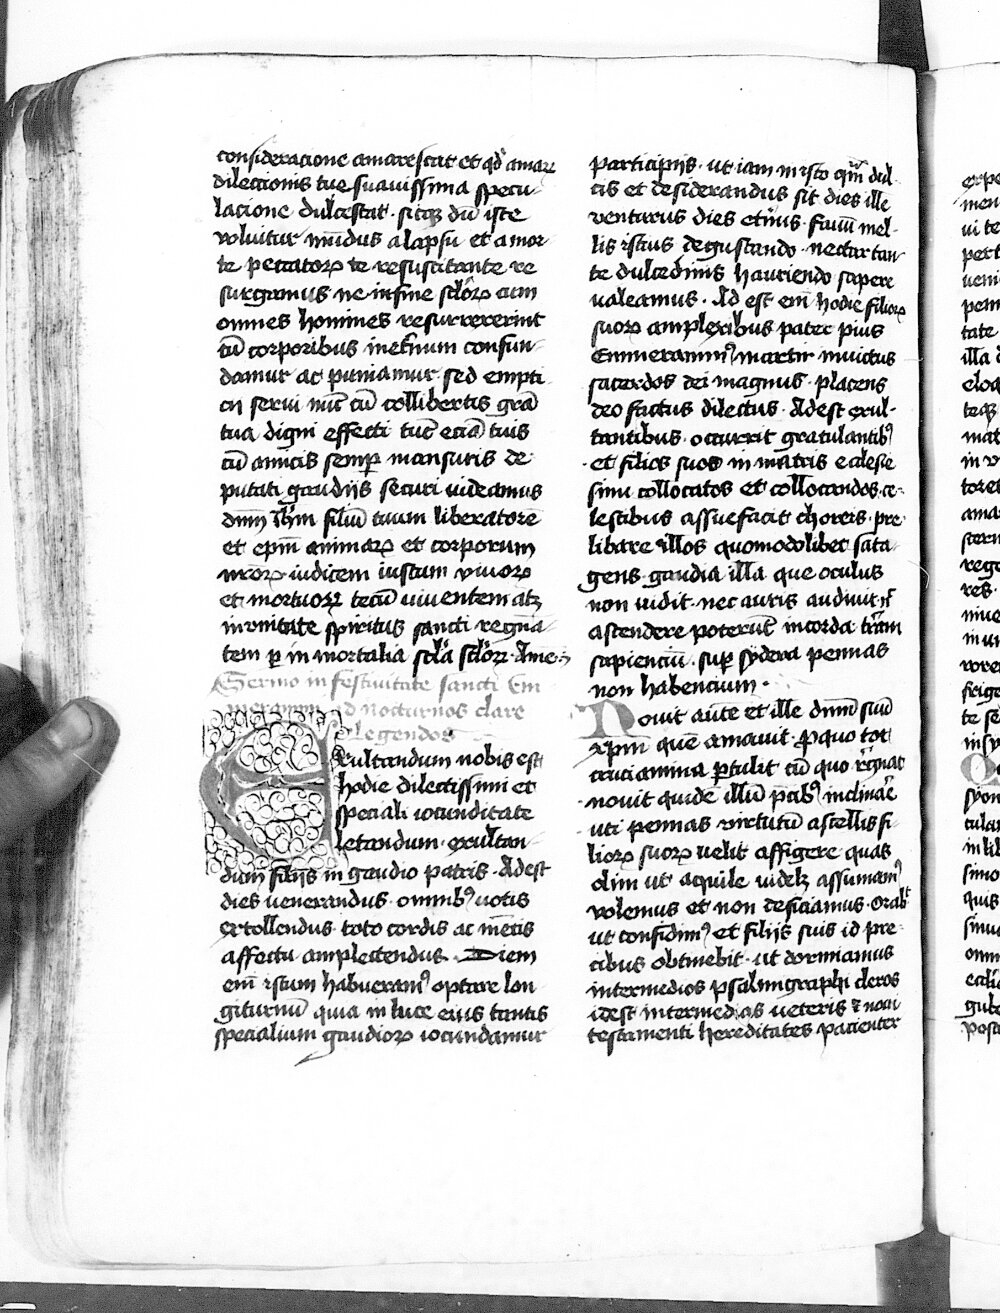 consideracione amarescat et qd̕ amarꝫ
dilectionis tue suauissima specu-
lacione dulcescat · sitqꝫ dū iste
voluitur mūdus a lapsu et a mor-
te peccatorꝝ te resuscitante re
surgamus ne in fine sc̄lorꝝ cum
omnes homines resurrexerint
cū corporibus in et̄num confun-
damur ac puniamur · sed empti
cii serui nūc cū collibertis grā
tua digni effecti tūc eciā tuis
cū amicis semꝑ mansuris de-
putati gaudiis securi uideamus
dnm̄ ihm̄ filiū tuum liberatorē
et epm̄ animarꝝ et corporum
nr̄orꝝ iudicem iustum viuorꝝ
et mortuorꝝ tecū uiuentem atqꝫ
in vnitate spiritus sancti regna-
tem ꝑ inmortalia sc̄la sc̄lorꝝ · Amē
Sermo in festiuitate sancti Em
merammi ad nocturnos clare
legendos
Exultandum nobis est
hodie dilectissimi et
speciali iocunditate
letandum · exultan-
dum filiis in gaudio patris · Adest
dies uenerandus · omnibꝰ uotis
extollendus · toto cordis ac mētis
affectu amplectendus · Diem
em̄ istum habueramꝰ optare lon
giturnū quia in luce eius tantis
specialium gaudiorꝝ iocundamur
participiis · ut iam in isto qm̄ dul-
cis et desiderandus sit dies ille
venturus dies et̄nus · fauū mel-
lis istius degustando · nectar tan-
te dulcedinis hauriendo sapere
ualeamus · Ad est em̄ hodie filiorꝝ
suorꝝ amplexibus pater pius
Emmerammꝰ martir inuictus
sacerdos dei magnus · placens
deo factus dilectus · Adest exul-
tantibus · occurrit gratulantibꝰ
et filios suos in matris ecclesie
sinu collocatos et collocandos · ce-
lestibus assuefacit choreis · pre-
libare illos quomodolibet sata-
gens · gaudia illa que oculus
non uidit · nec auris audiuit · n̄
ascendere poterūt in corda · trām
sapienciū · suꝑ sydera pennas
non habencium ·
Nouit aūte et ille dnm̄ suū
xpm̄ quē amauit · ꝓ quo tot
cruciamina ꝑtulit cū quo regnat
nouit quidē illū p̄cibꝰ inclinare
uti pennas virtutū ascellis fi-
liorꝝ suorꝝ uelit affigere quas
olim ut aquile uidelꝫ assumamꝰ
volemus et non deficiamus · Orabit
ut confidimꝰ et filiis suis id pre-
cibus obtinebit · ut dormiamus
inter medios psalmigraphi cleros
idest inter medias ueteris ⁊ noui
testamenti hereditates pacienter